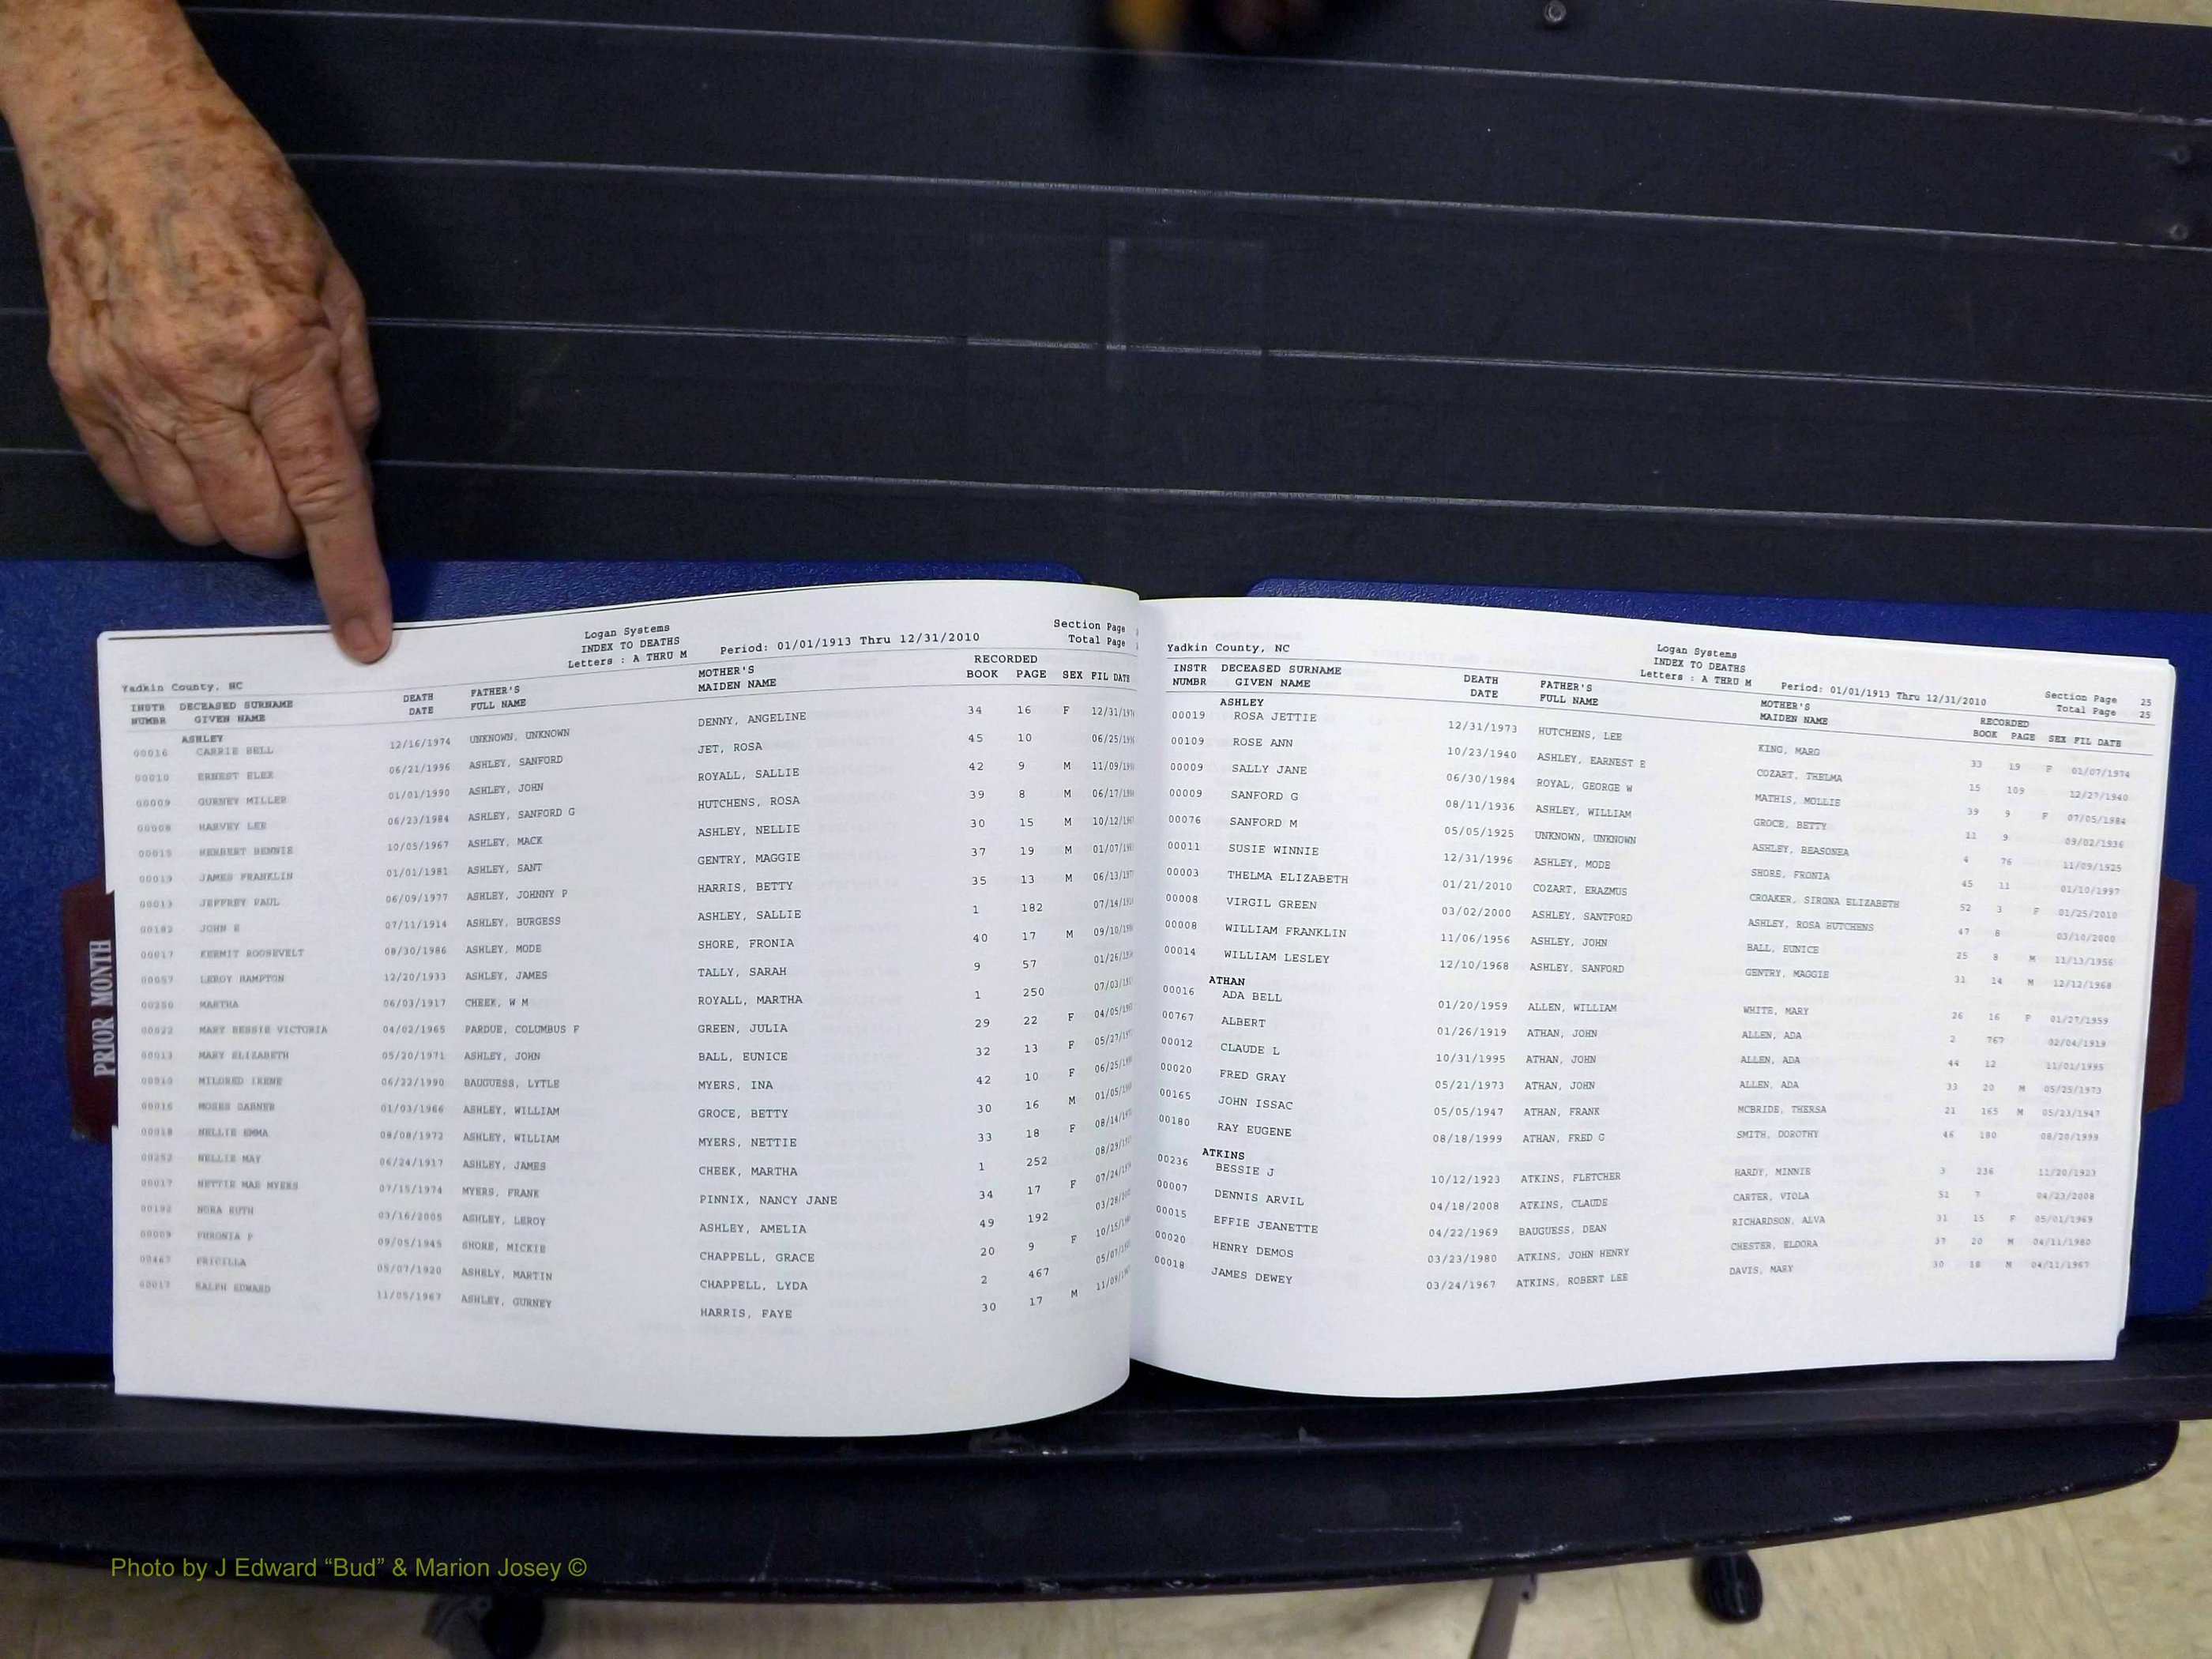 Logan Systems
INDEX TO DEATHS
Letters : A THRU M
Period: 01/01/1913 Thru 12/31/2010
Section Page
Total Page
Yadkin County, NC
INSTR DECEASED SURNAME DEATH FATHER'S MOTHER'S RECORDED
NUMBR GIVEN NAME DATE FULL NAME MAIDEN NAME BOOK PAGE SEX FIL DATE
ASHLEY
00016 CARRIE BELL 12/16/1974 UNKNOWN, UNKNOWN DENNY, ANGELINE 34 16 F
00010 ERNEST ELEX 06/21/1996 ASHLEY, SANFORD JET, ROSA 45 10
00009 GURNEY MILLER 01/01/1990 ASHLEY, JOHN ROYALL, SALLIE 42 9 M
00008 HARVEY LEE 06/23/1984 ASHLEY, SANFORD G HUTCHENS, ROSA 39 8 M
00015 HERBERT BENNIE 10/05/1967 ASHLEY, MACK ASHLEY, NELLIE 30 15 M
00019 JAMES FRANKLIN 01/01/1981 ASHLEY, SANT GENTRY, MAGGIE 37 19 M
00013 JEFFREY PAUL 06/09/1977 ASHLEY, JOHNNY P HARRIS, BETTY 35 13 M
00182 JOHN E 07/11/1914 ASHLEY, BURGESS ASHLEY, SALLIE 1 182
00017 KERMIT ROOSEVELT 08/30/1986 ASHLEY, MODE SHORE, FRONIA 40 17 M
00057 LEROY HAMPTON 12/20/1933 ASHLEY, JAMES TALLY, SARAH 9 57
00250 MARTHA 06/03/1917 CHEEK, W M ROYALL, MARTHA 1 250
00022 MARY BESSIE VICTORIA 04/02/1965 PARDUE, COLUMBUS F GREEN, JULIA 29 22 F
00013 MARY ELIZABETH 05/20/1971 ASHLEY, JOHN BALL, EUNICE 32 13 F
00010 MILDRED IRENE 06/22/1990 BAUGUESS, LYTLE MYERS, INA 42 10 F
00016 MOSES DABNER 01/03/1966 ASHLEY, WILLIAM GROCE, BETTY 30 16 M
00018 NELLIE EMMA 08/08/1972 ASHLEY, WILLIAM MYERS, NETTIE 33 18 F
00252 NELLIE MAY 06/24/1917 ASHLEY, JAMES CHEEK, MARTHA 1 252
00017 NETTIE MAE MYERS 07/15/1974 MYERS, FRANK PINNIX, NANCY JANE 34 17 F
00192 NORA RUTH 03/16/2005 ASHLEY, LEROY ASHLEY, AMELIA 49 192
00009 PHRONIA P 09/05/1945 SHORE, MICKIE CHAPPELL, GRACE 20 9 F
00467 PRICILLA 05/07/1920 ASHELY, MARTIN CHAPPELL, LYDA 2 467
00017 RALPH EDWARD 11/05/1967 ASHLEY, GURNEY HARRIS, FAYE 30 17 M
PRIOR MONTH
Yadkin County, NC
Logan Systems
INDEX TO DEATHS
Letters : A THRU M
Period: 01/01/1913 Thru 12/31/2010
Section Page 25
Total Page 25
INSTR DECEASED SURNAME DEATH FATHER'S MOTHER'S RECORDED
NUMBR GIVEN NAME DATE FULL NAME MAIDEN NAME BOOK PAGE SEX FIL DATE
ASHLEY
00019 ROSA JETTIE 12/31/1973 HUTCHENS, LEE KING, MARG 33 19 F 01/07/1974
00109 ROSE ANN 10/23/1940 ASHLEY, EARNEST E COZART, THELMA 15 109 12/27/1940
00009 SALLY JANE 06/30/1984 ROYAL, GEORGE W MATHIS, MOLLIE 39 9 F 07/05/1984
00009 SANFORD G 08/11/1936 ASHLEY, WILLIAM GROCE, BETTY 11 9 09/02/1936
00076 SANFORD M 05/05/1925 UNKNOWN, UNKNOWN ASHLEY, BEASONEA 4 76 11/09/1925
00011 SUSIE WINNIE 12/31/1996 ASHLEY, MODE SHORE, FRONIA 45 11 01/10/1997
00003 THELMA ELIZABETH 01/21/2010 COZART, ERAZMUS CROAKER, SIRONA ELIZABETH 52 3 F 01/25/2010
00008 VIRGIL GREEN 03/02/2000 ASHLEY, SANTFORD ASHLEY, ROSA HUTCHENS 47 8 03/10/2000
00008 WILLIAM FRANKLIN 11/06/1956 ASHLEY, JOHN BALL, EUNICE 25 8 M 11/13/1956
00014 WILLIAM LESLEY 12/10/1968 ASHLEY, SANFORD GENTRY, MAGGIE 31 14 M 12/12/1968
ATHAN
00016 ADA BELL 01/20/1959 ALLEN, WILLIAM WHITE, MARY 26 16 F 01/27/1959
00767 ALBERT 01/26/1919 ATHAN, JOHN ALLEN, ADA 2 767 02/04/1919
00012 CLAUDE L 10/31/1995 ATHAN, JOHN ALLEN, ADA 44 12 11/01/1995
00020 FRED GRAY 05/21/1973 ATHAN, JOHN ALLEN, ADA 33 20 M 05/25/1973
00165 JOHN ISSAC 05/05/1947 ATHAN, FRANK MCBRIDE, THERSA 21 165 M 05/23/1947
00180 RAY EUGENE 08/18/1999 ATHAN, FRED G SMITH, DOROTHY 46 180 08/20/1999
ATKINS
00236 BESSIE J 10/12/1923 ATKINS, FLETCHER HARDY, MINNIE 3 236 11/20/1923
00007 DENNIS ARVIL 04/18/2008 ATKINS, CLAUDE CARTER, VIOLA 51 7 04/23/2008
00015 EFFIE JEANETTE 04/22/1969 BAUGUESS, DEAN RICHARDSON, ALVA 31 15 F 05/01/1969
00020 HENRY DEMOS 03/23/1980 ATKINS, JOHN HENRY CHESTER, ELDORA 37 20 M 04/11/1980
00018 JAMES DEWEY 03/24/1967 ATKINS, ROBERT LEE DAVIS, MARY 30 18 M 04/11/1967
Photo by J Edward “Bud” & Marion Josey ©